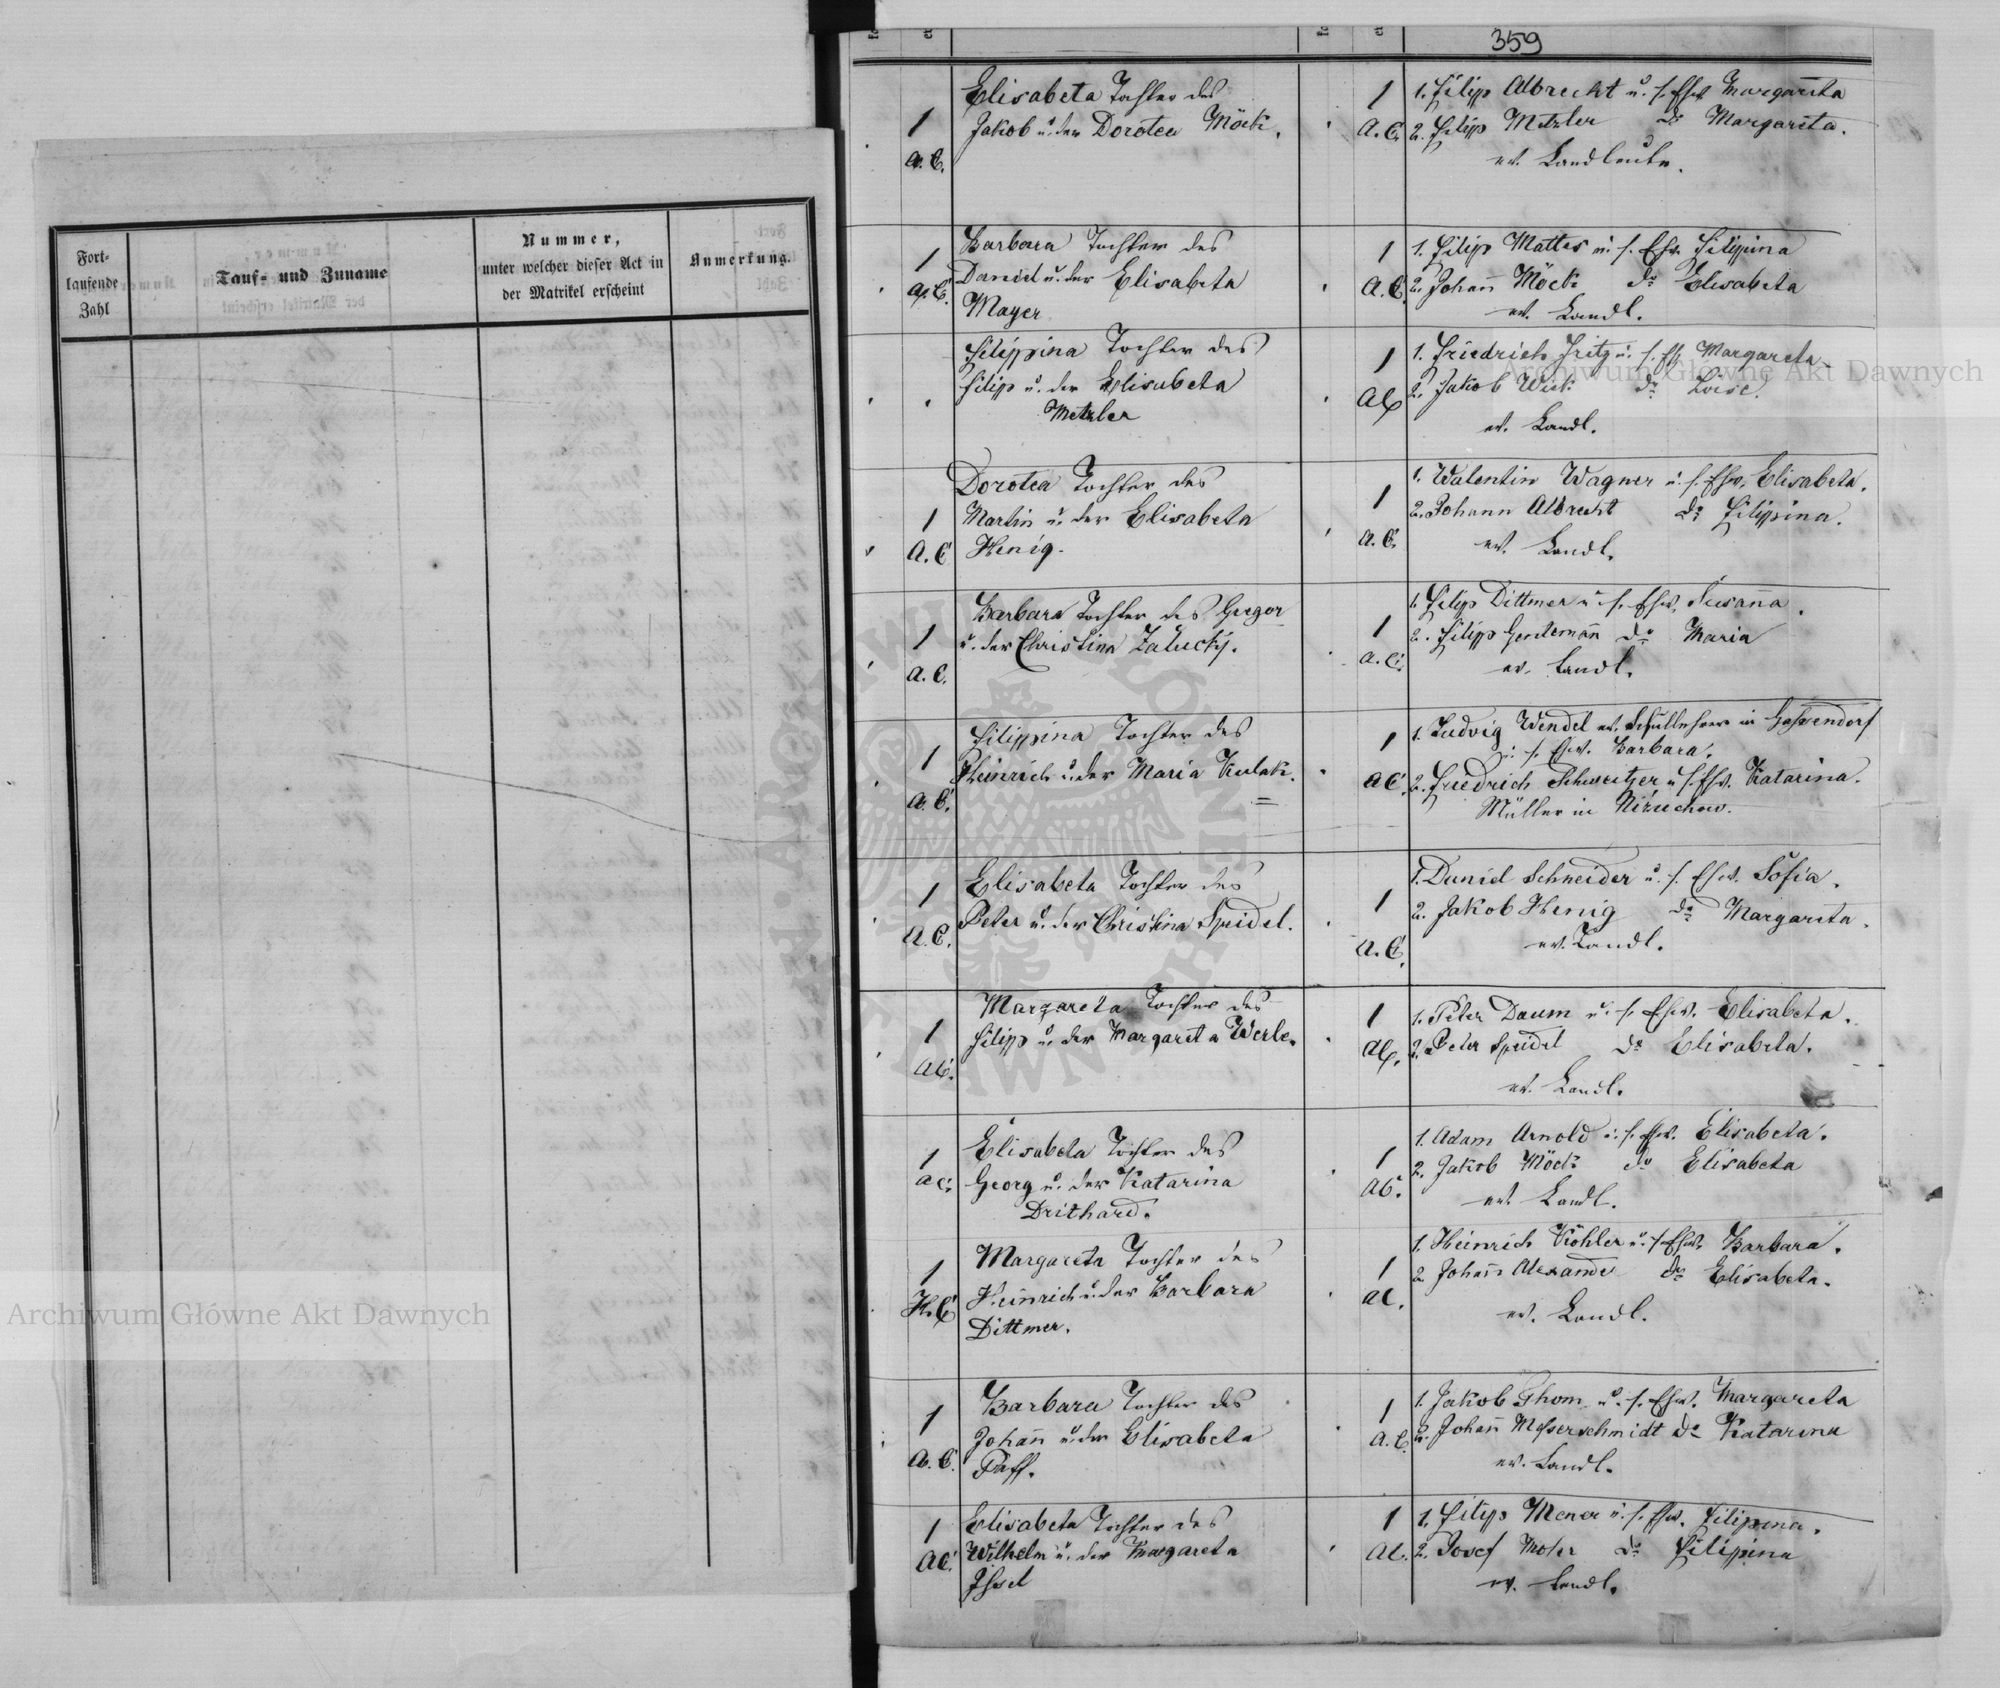 Fort-
laufende
Zahl
Tauf- und Zuname
Nummer,
unter welcher dieser Act in
der Matrikel erscheint
Anmerkung.
359
1
A. C.
Elisabeta Tochter des
Jakob u. der Dorotea Möck.
1
A. C.
1. Filip Albrecht u. s. Ehw. Margareta
2. Filip Metzler do Margareta.
ev. Landleute.
1
A. C.
Barbara Tochter des
Daniel u. der Elisabeta
Mayer
1
A. C.
1. Filip Mattes u. s. Ehw. Filippina
2. Johann Möck do Elisabeta
ev. Landl.
Filippina Tochter des
Filip u. der Elisabeta
Metzler
1
AC
1. Friedrich Fritz u. s. Eh Margareta
2. Jakob Wick do Loise.
ev. Landl.
1
A. C
Dorotea Tochter des
Martin u. der Elisabeta
Henig.
1
A. C.
1. Walentin Wagner u. s. Ehw. Elisabeta.
2. Johann Albrecht do Filippina.
ev. Landl.
1
A. C.
Barbara Tochter des Gregor
u. der Christina Zalucky.
1
A. C.
1. Filip Dittmer u. s. Ehw. Susanna.
2. Filip Gentemann do Maria
ev. Landl.
1
A. C.
Filippina Tochter des
Heinrich u. der Maria Kulak.
1
AC.
1. Ludvig Wendel ev. Schullehrer in
u. s. Ehw. Barbara.
2. Friedrich Schweitzer u. s. Ehw. Katarina.
Müller in Niżuchow.
1
A. C.
Elisabeta Tochter des
Peter u. der Christina Speidel.
1
A. C.
1. Daniel Schneider u. s. Ehw. Sofia.
2. Jakob Henig do Margareta.
ev. Landl.
1
AC.
Margareta Tochter des
Filipp u. der Margareta Werle.
1
AC.
1. Peter Daum u. s. Ehw. Elisabeta.
2. Peter Speidel do Elisabeta.
ev. Landl.
1
AC.
Elisabeta Tochter des
Georg u. der Katarina
Drithard.
1
AC.
1. Adam Arnold u. s. Ehw. Elisabeta.
2. Jakob Möck do Elisabeta
ev. Landl.
1
H. C
Margareta Tochter des
Heinrich u. der Barbara
Dittmer.
1
AC.
1. Heinrich Köhler u. s. Ehw. Barbara.
2. Johann Alexander do Elisabeta.
ev. Landl.
1
A. C.
Barbara Tochter des
Johann u. der Elisabeta
Paff.
1
A. C.
1. Jakob Thom u. s. Ehw. Margareta
2. Johann Messerschmidt do Katarina
ev. Landl.
1
AC.
Elisabeta Tochter des
Wilhelm u. der Margareta
1
AC.
1. Filip u. s. Ehw. Filipina.
2. Josef do Filipina
ev. Landl.
Archiwum Główne Akt Dawnych
Archiwum Główne Akt Dawnych